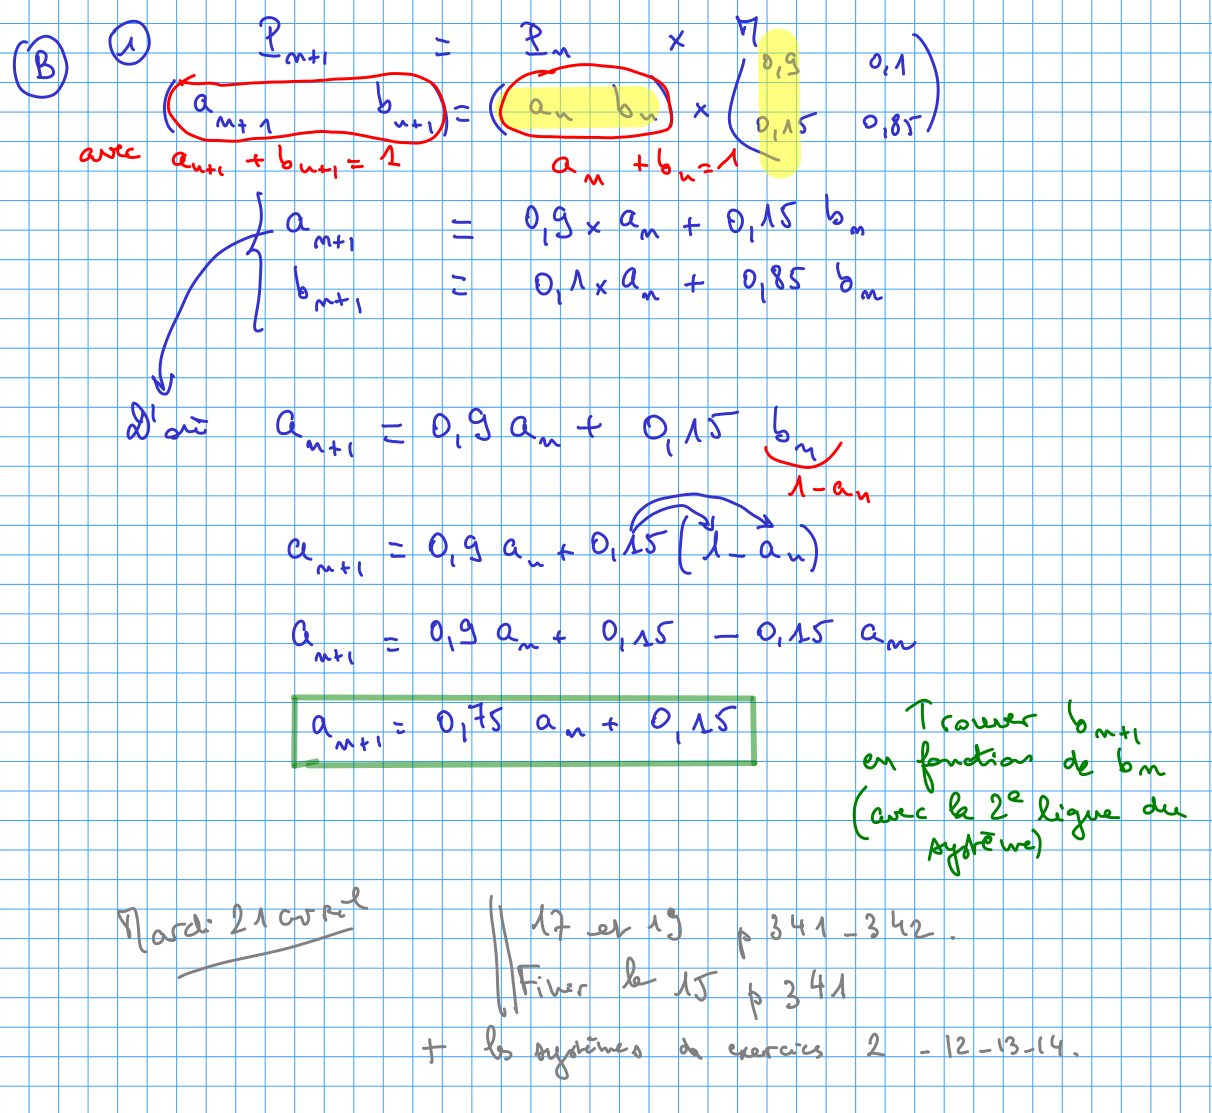 B 1 P_{n+1} = P_n × M
(a_{n+1} b_{n+1}) = (a_n b_n) × (0,9 0,1
0,15 0,85)
avec a_{n+1} + b_{n+1} = 1 a_n + b_n = 1
{ a_{n+1} = 0,9 × a_n + 0,15 b_n
b_{n+1} = 0,1 × a_n + 0,85 b_n
D'où a_{n+1} = 0,9 a_n + 0,15 b_n
1 - a_n
a_{n+1} = 0,9 a_n + 0,15 (1 - a_n)
a_{n+1} = 0,9 a_n + 0,15 - 0,15 a_n
a_{n+1} = 0,75 a_n + 0,15
Trouver b_{n+1}
en fonction de b_n
(avec la 2e ligne du
système)
Mardi 21 avril
17 et 19 p 341 - 342.
Finir le 15 p 341
+ les systèmes de exercices 2 - 12 - 13 - 14.